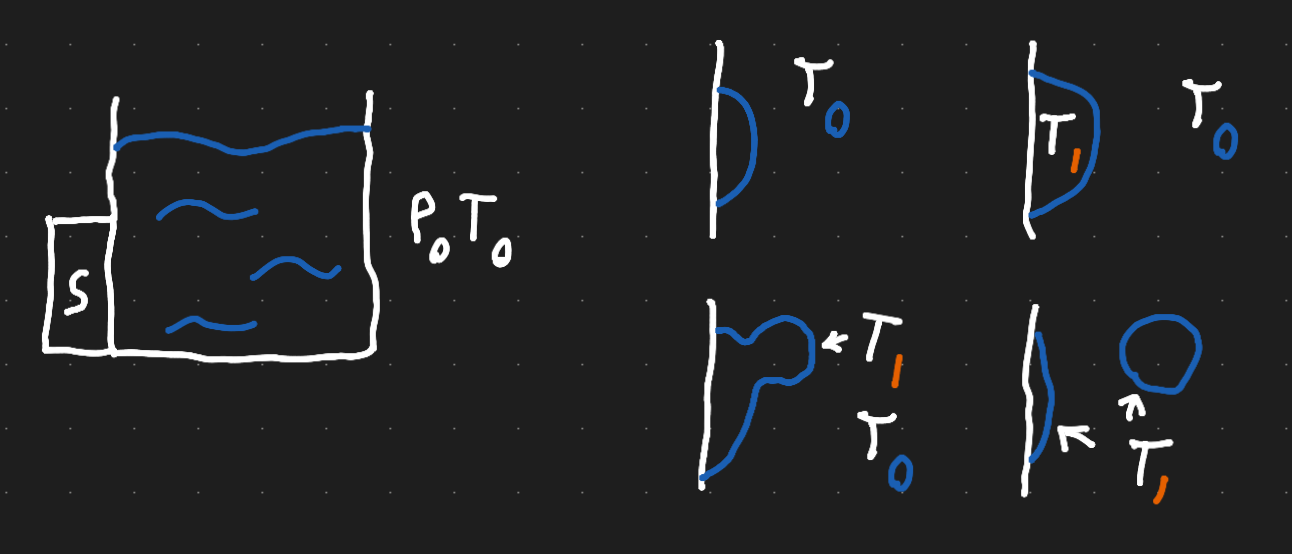 S
P₀ T₀
T₀
T₁
T₀
T₁
T₀
T₁